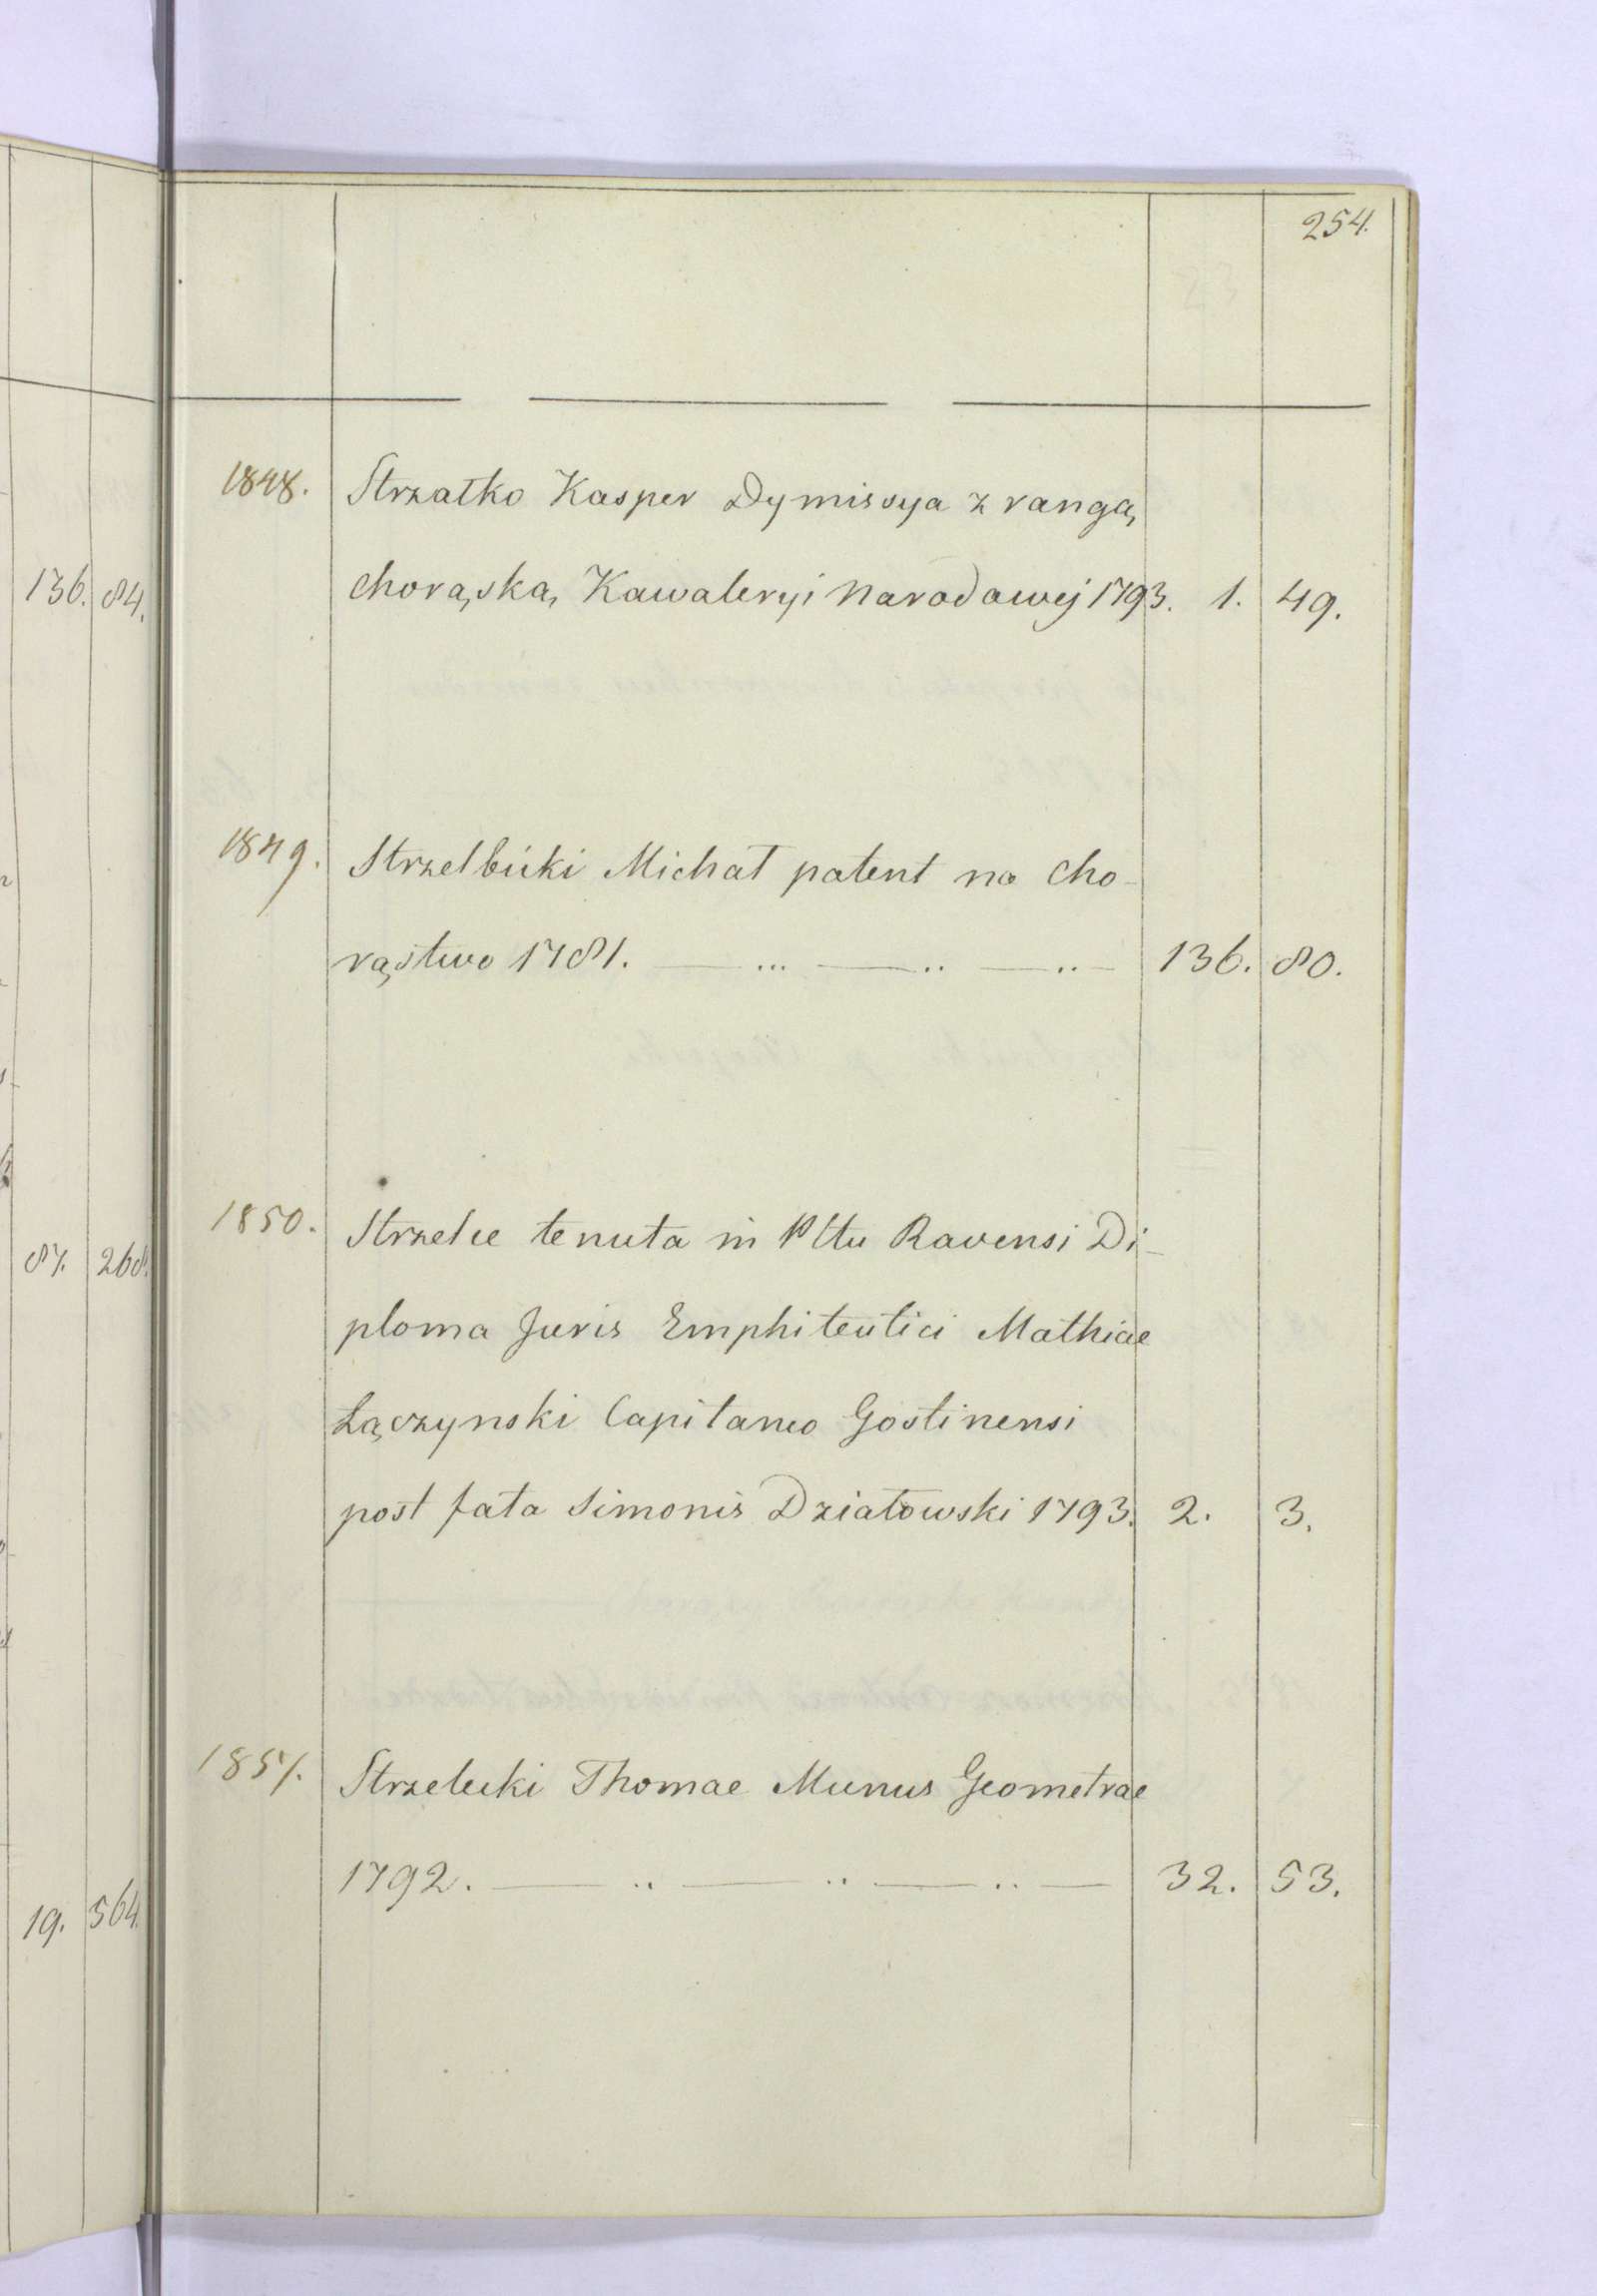 254.
1848. Strzałko Kasper Dymissya z rangą
chorąską Kawaleryi Narodowej 1793. 1. 49.
136. 84.
1849. Strzelbicki Michał patent na cho-
rąstwo 1781. — ... — .. — .. — 136. 80.
1850. Strzelce tenuta in Pltu Ravensi Di-
87. 268.
ploma Juris Emphiteutici Mathiae
Łączynski Capitaneo Gostinensi
post fata Simonis Dziatowski 1793. 2. 3.
1851. Strzelecki Thomae Munus Geometrae
1792. — .. — .. — .. — 32. 53.
19. 564.